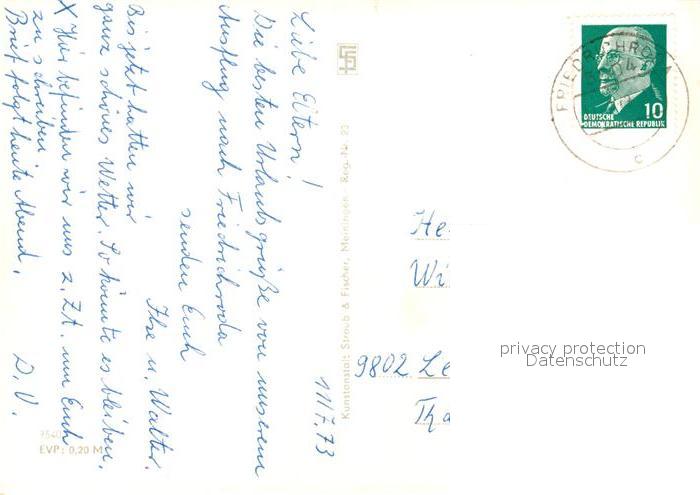 11.7.73
Liebe Eltern!
Die besten Urlaubsgrüße von unserem
Ausflug nach Friedrichroda
senden Euch
Ilse u. Walter.
Bis jetzt hatten wir
ganz schönes Wetter. So könnte es bleiben.
X Hier befinden wir uns z. Zt. um Euch
zu schreiben
Brief folgt heute Abend.
D. O.
EVP: 0,20 M
Kunstanstalt Straub & Fischer, Meiningen - Reg.-Nr. 23
FRIEDRICHRODA
c
10
DEUTSCHE
DEMOKRATISCHE REPUBLIK
He
Wi
9802 Le
Tha
privacy protection
Datenschutz